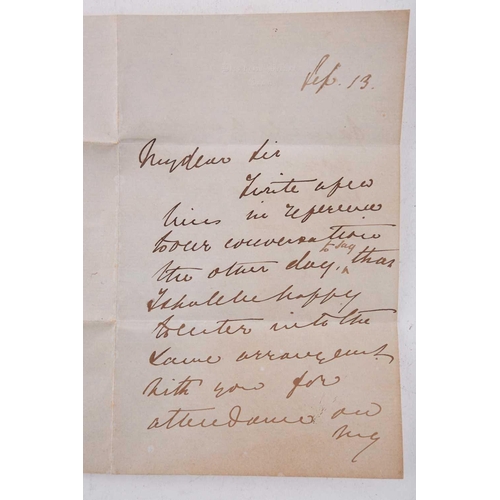 Sep. 13.
My dear Sir
I write a few
lines in reference
to our conversation
to say
the other day, that
I shall be happy
to enter into the
same arrangement
with you for
attendance on
my